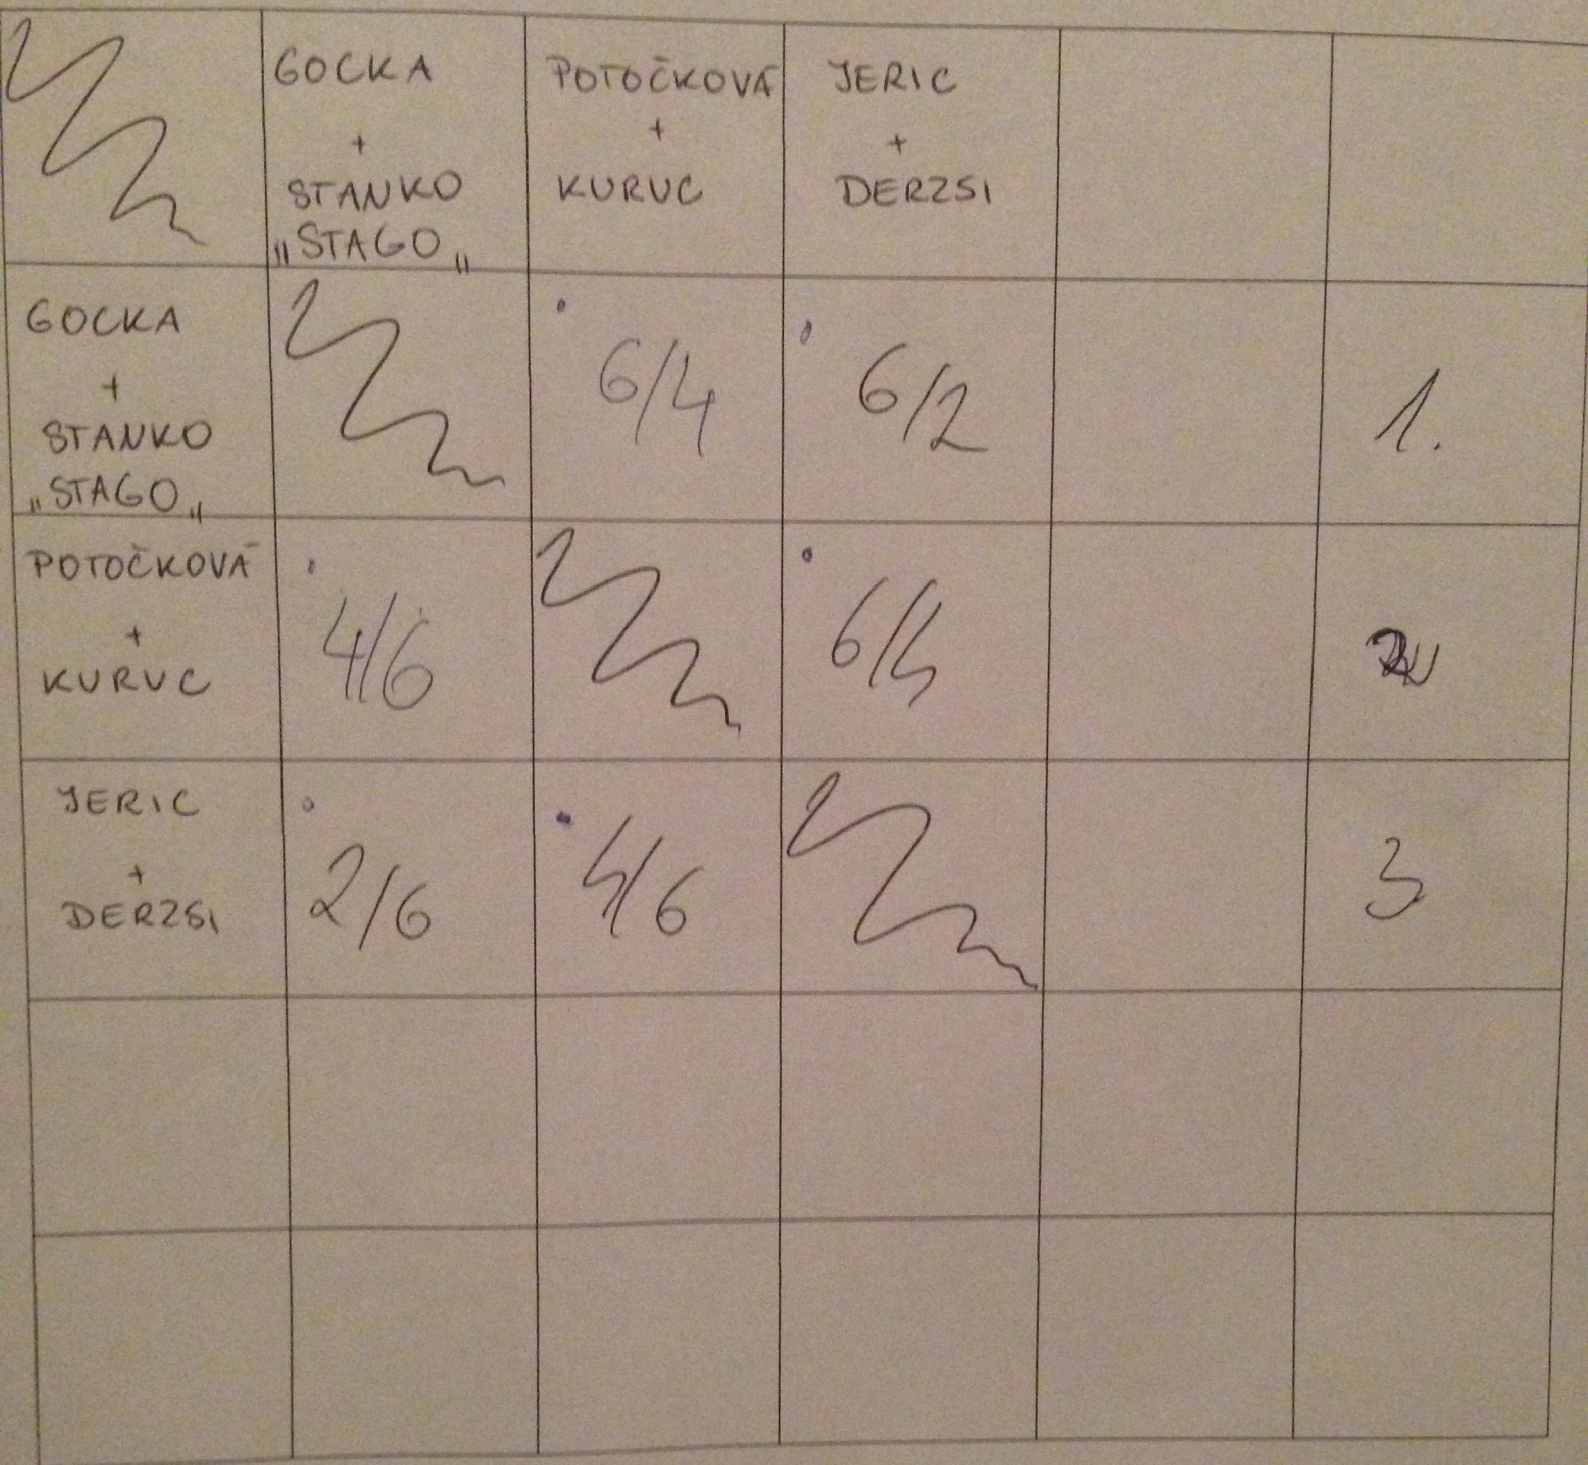 GOCKA
+
STANKO
„STAGO„
POTOČKOVÁ
+
KURUC
JERIC
+
DERZSI
GOCKA
+
STANKO
„STAGO„
6/4
6/2
1.
POTOČKOVÁ
+
KURUC
4/6
6/4
2
JERIC
+
DERZSI
2/6
4/6
3